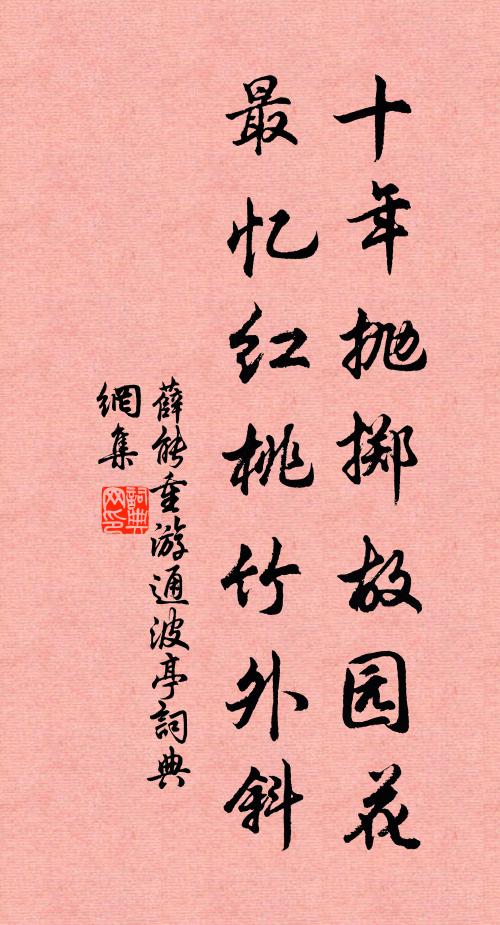 十年抛掷故园花
最忆红桃竹外斜
薛能重游通波亭詞典
網集
詞典
网印